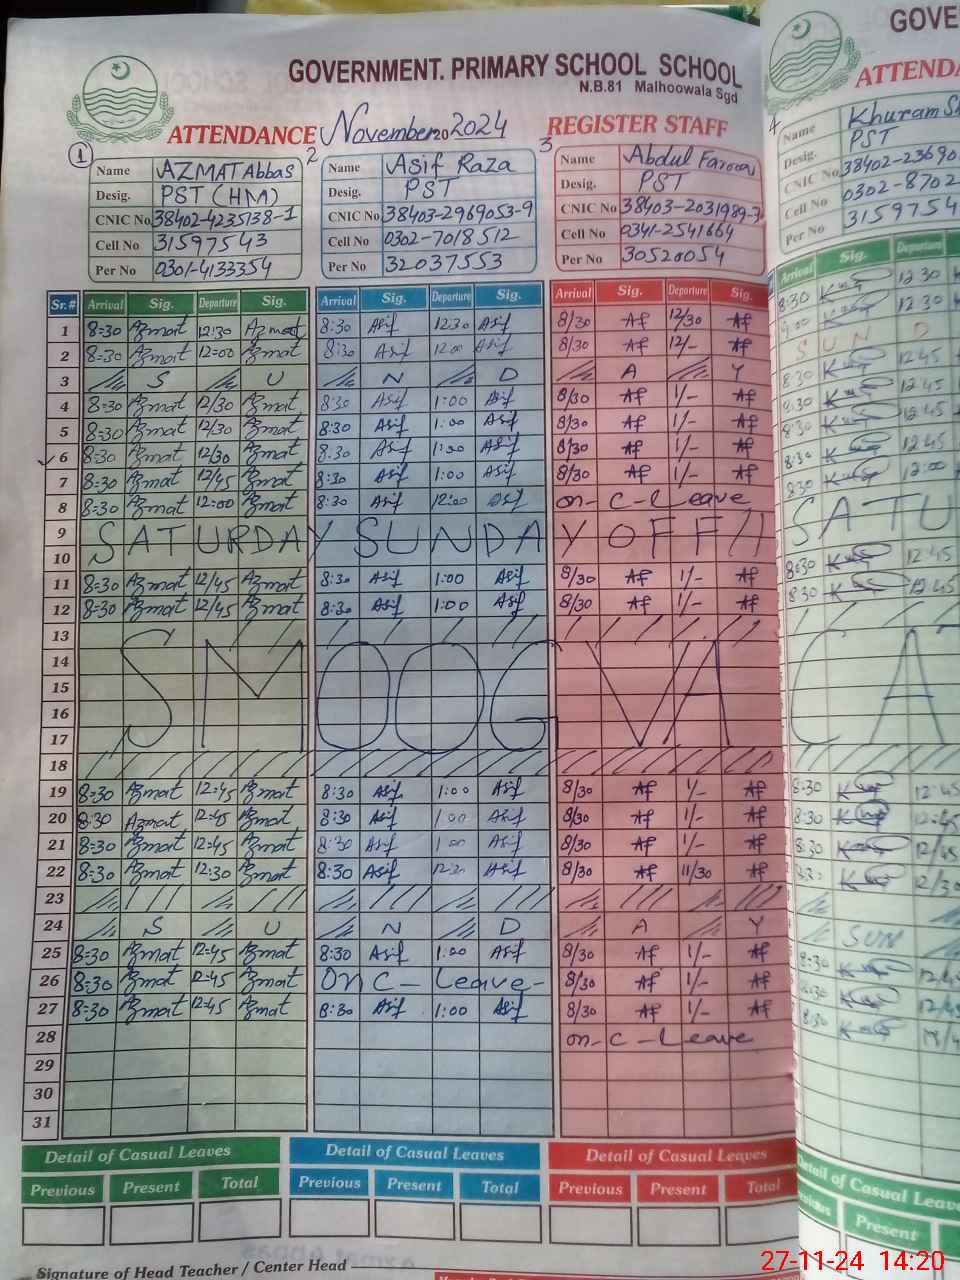 GOVERNMENT. PRIMARY SCHOOL SCHOOL
N.B.81 Malhoowala Sgd
ATTENDANCE November 20 2024 REGISTER STAFF
1 2 3
Name AZMAT Abbas Name Asif Raza Name Abdul
Desig. PST (HM) Desig. PST Desig. PST
CNIC No 38402-4235138-1 CNIC No 38403-2969053-9 CNIC No 38403-2031989-
Cell No 31597543 Cell No 0302-7018512 Cell No 0341-2541664
Per No 0301-4133354 Per No 32037553 Per No 30520054
Sr.# Arrival Sig. Departure Sig. Arrival Sig. Departure Sig. Arrival Sig. Departure Sig.
1 8=30 Azmat 12:30 Azmat 8:30 Asif 12:30 Asif 8/30 Af 12/30 Af
2 8=30 Azmat 12=00 Azmat 8:30 Asif 12:00 Asif 8/30 Af 12/- Af
3 S U N D A Y
4 8=30 Azmat 12/30 Azmat 8:30 Asif 1:00 Asif 8/30 Af 1/- Af
5 8=30 Azmat 12/30 Azmat 8:30 Asif 1:00 Asif 8/30 Af 1/- Af
6 8=30 Azmat 12/30 Azmat 8:30 Asif 1:00 Asif 8/30 Af 1/- Af
7 8=30 Azmat 12/45 Azmat 8:30 Asif 1:00 Asif 8/30 Af 1/- Af
8 8=30 Azmat 12:00 Azmat 8:30 Asif 12:00 Asif on-C-Leave
9
10 SATURDAY SUNDAY OFF
11 8=30 Azmat 12/45 Azmat 8:30 Asif 1:00 Asif 8/30 Af 1/- Af
12 8=30 Azmat 12/45 Azmat 8:30 Asif 1:00 Asif 8/30 Af 1/- Af
13
14
15 SMOOG VA
16
17
18
19 8=30 Azmat 12=45 Azmat 8:30 Asif 1:00 Asif 8/30 Af 1/- Af
20 8:30 Azmat 12=45 Azmat 8:30 Asif 1:00 Asif 8/30 Af 1/- Af
21 8=30 Azmat 12=45 Azmat 8:30 Asif 1:00 Asif 8/30 Af 1/- Af
22 8=30 Azmat 12:30 Azmat 8:30 Asif 12:30 Asif 8/30 Af 11/30 Af
23
24 S U N D A Y
25 8=30 Azmat 12=45 Azmat 8:30 Asif 1:00 Asif 8/30 Af 1/- Af
26 8=30 Azmat 12=45 Azmat on C- Leave- 8/30 Af 1/- Af
27 8=30 Azmat 12=45 Azmat 8:30 Asif 1:00 Asif 8/30 Af 1/- Af
28 on-C-Leave
29
30
31
Detail of Casual Leaves Detail of Casual Leaves Detail of Casual Leaves
Previous Present Total Previous Present Total Previous Present Total
Signature of Head Teacher / Center Head
GOVE
ATTENDA
4
Name Khuram
Desig. PST
CNIC No 38402-23690
Cell No 0302-8702
Per No 3159754
Arrival Sig. Departure
8:30 12 30
9:00 12 30
S U N D
8:30 12 45
8:30 12 45
8:30 12 45
8:30 12:45
8:30 12:00
SATU
8:30 12:45
8 30 12:45
CA
8:30 12:45
8:30 12:45
8:30 12/45
8:30 12/30
SUN
8:30
8:30
8:30
Detail of Casual Leave
Present
27-11-24 14:20